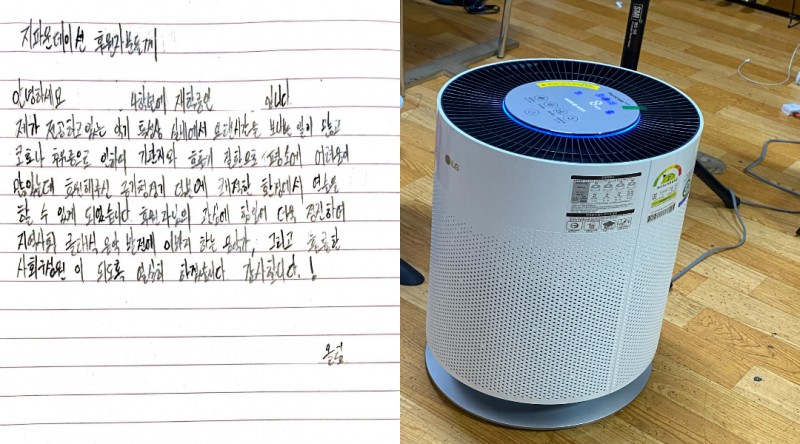 지파운데이션 후원자분들께
안녕하세요 4학년에 재학중인 입니다
제가 전공하고 있는 악기 특성상 실내에서 오랜시간을 보내는 일이 많고
코로나 후유증으로 인하여 기관지와 호흡기 질환으로 어려움이
많았는데 후원해주신 공기청정기 덕분에 쾌적한 환경에서 연습을
할 수 있게 되었습니다. 후원자님의 관심에 힘입어 더욱 정진하여
지역사회 클래식 음악 발전에 이바지 하는 음악가, 그리고 훌륭한
사회구성원이 되도록 열심히 하겠습니다 감사합니다.!
올림
LG